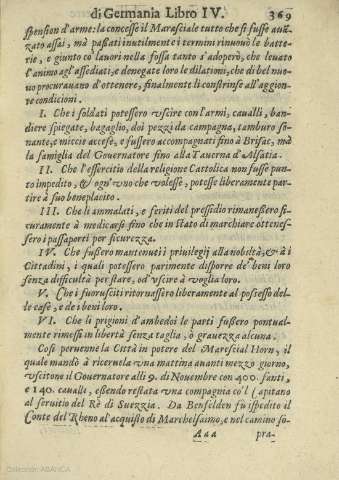 di Germania Libro IV. 369
spension d'arme: la concesse il Marasciale tutto che si fusse auã-
zato assai, mà passati inutilmente i termini rinuouò le batte-
rie, e giunto co' lauori nella fossa tanto s'adoperò, che leuato
l'animo agl'assediati, e denegate loro le dilationi, che di bel nuo-
uo procurauano d'ottenere, finalmente li constrinse all'aggion-
re condicioni.
I. Che i soldati potessero vscire con l'armi, caualli, ban-
diere spiegate, bagaglio, doi pezzi da campagna, tamburo so-
nante, e miccie accese, e fussero accompagnati fino à Brisac, mà
la famiglia del Gouernatore fino alla Tauerna d'Alsatia.
II. Che l'essercitio della religione Cattolica non fusse pun-
to impedito, & ogn'vno che volesse, potesse liberamente par-
tire à suo beneplacito.
III. Che li ammalati, e feriti del pressidio rimanessero si-
curamente à medicarsi fino che in stato di marchiare ottenes-
sero i passaporti per sicurezza.
IV. Che fussero mantenuti i priuilegij alla nobiltà, & à i
Cittadini, i quali potessero parimente disporre de' beni loro
senza difficultà per stare, od vscire à voglia loro.
V. Che i fuorusciti ritornassero liberamente al possesso del-
le case, e de i beni loro.
VI. Che li prigioni d'ambedoi le parti fussero pontual-
mente rimessi in libertà senza taglia, ò grauezza alcuna.
Così peruenne la Città in potere del Marescial Horn, il
quale mandò à riceruela vna mattina auanti mezzo giorno,
vscitono il Gouernatore alli 9. di Nouembre con 400. fanti,
e 140. caualli, essendo restata vna compagnia co'l Capitano
al seruitio del Rè di Suezzia. Da Benfelden fù ispedito il
Conte del Rheno al acquisto di Marchelsaimo, e nel camino so-
Aaa pra-
Colección: ABANCA